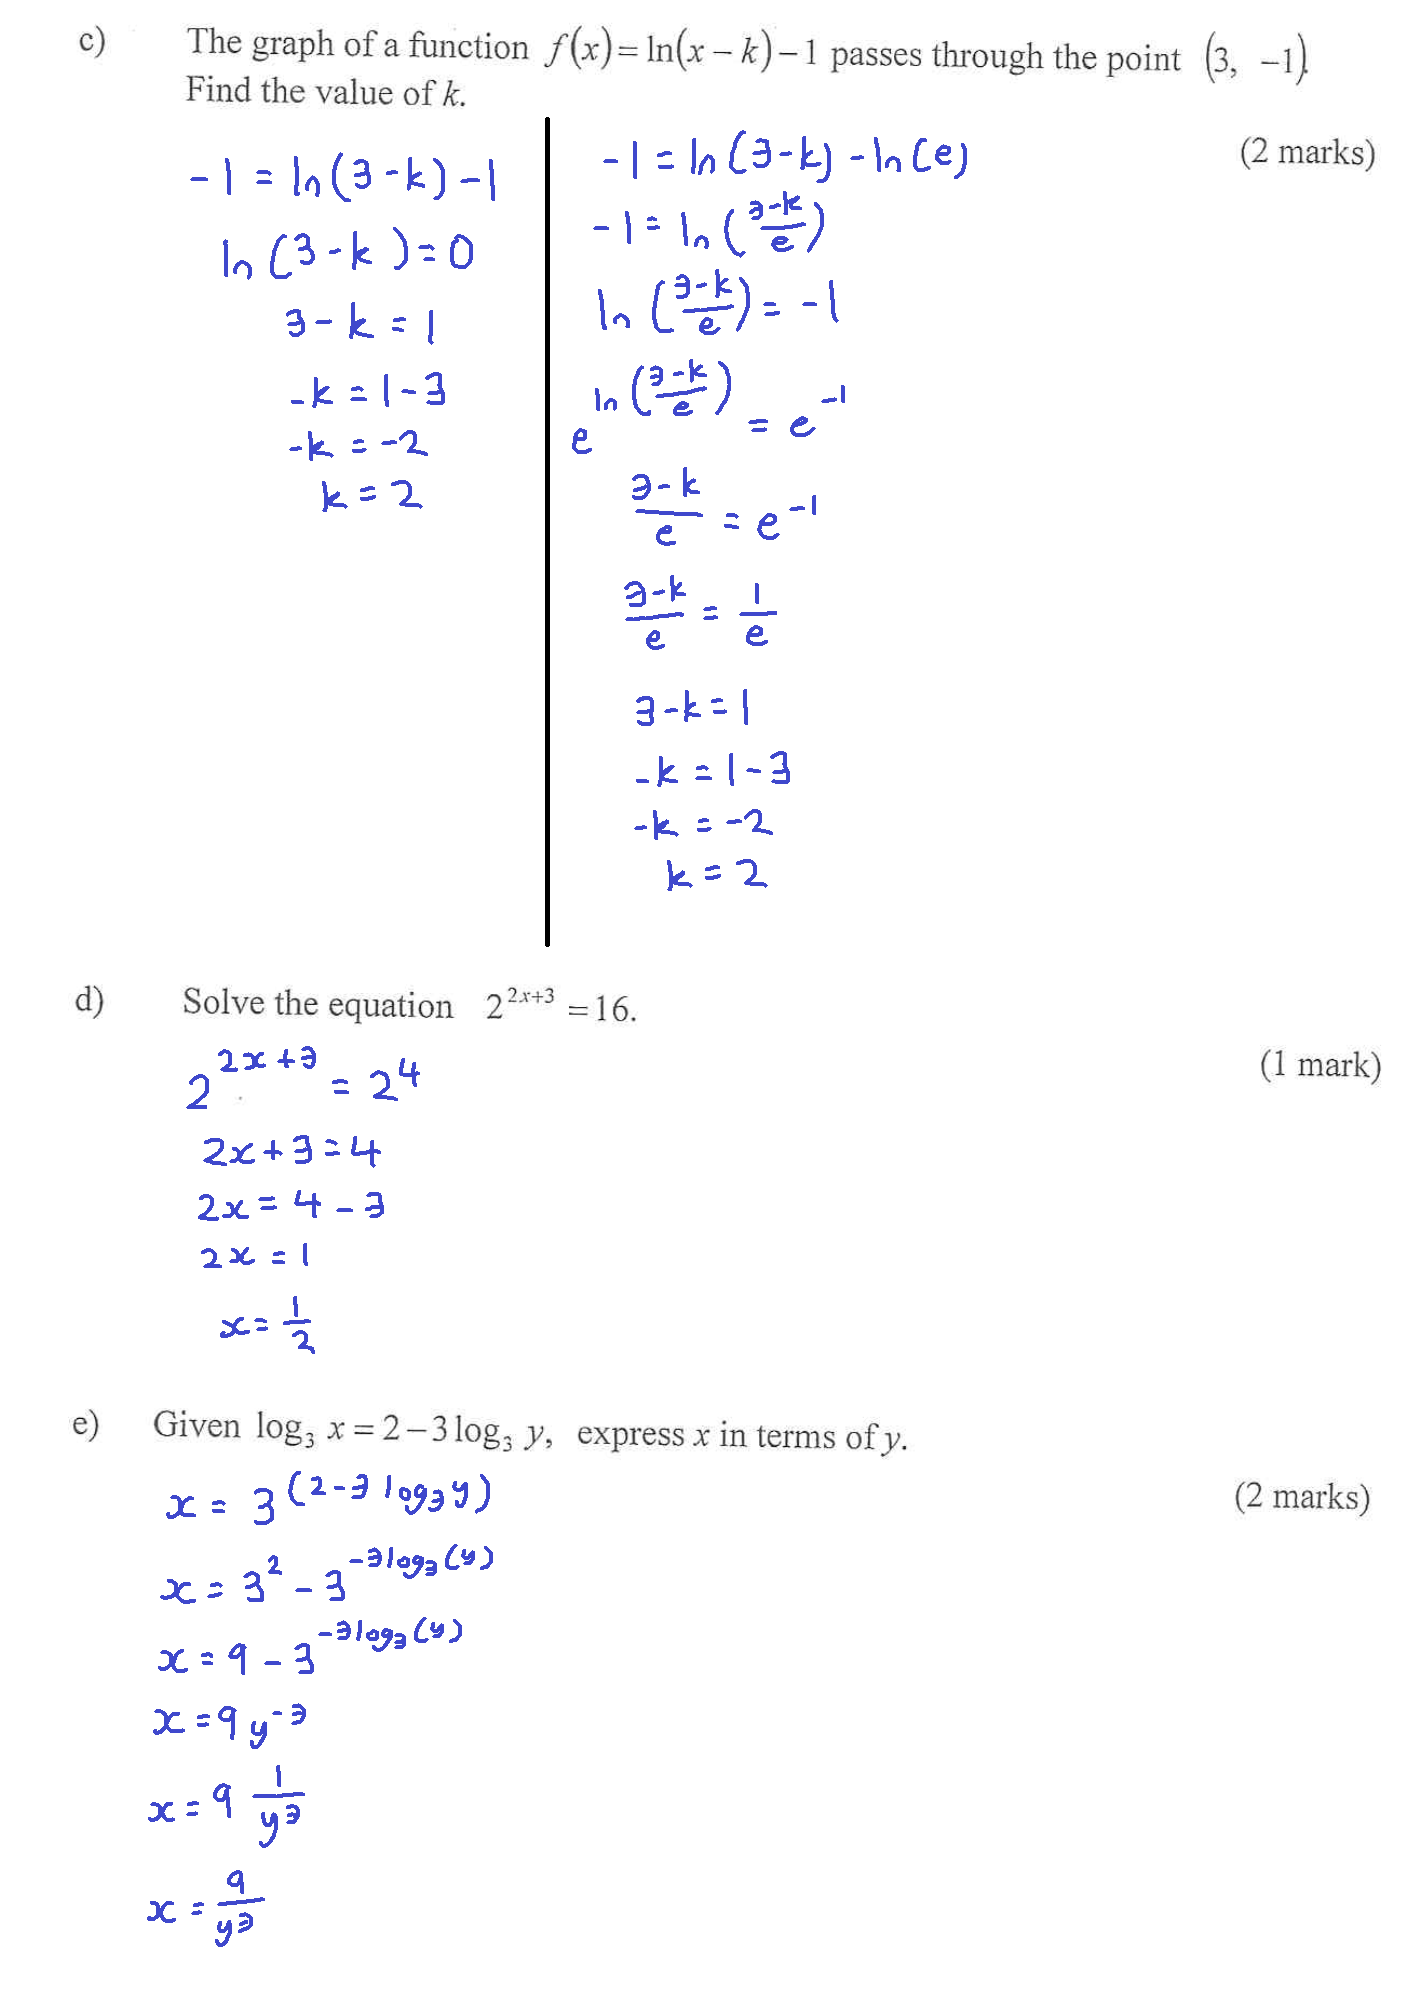 c) The graph of a function f(x) = ln(x − k) − 1 passes through the point (3, −1).
Find the value of k.
(2 marks)
-1 = ln(3-k) -1
ln(3-k) = 0
3-k = 1
-k = 1-3
-k = -2
k = 2
-1 = ln(3-k) - ln(e)
-1 = ln((3-k)/e)
ln((3-k)/e) = -1
e^(ln((3-k)/e)) = e^-1
(3-k)/e = e^-1
(3-k)/e = 1/e
3-k = 1
-k = 1-3
-k = -2
k = 2
d) Solve the equation 2^(2x+3) = 16.
(1 mark)
2^(2x+3) = 2^4
2x+3 = 4
2x = 4-3
2x = 1
x = 1/2
e) Given log₃ x = 2 − 3 log₃ y, express x in terms of y.
(2 marks)
x = 3^(2-3log₃y)
x = 3² - 3^(-3log₃(y))
x = 9 - 3^(-3log₃(y))
x = 9y^-3
x = 9 1/y³
x = 9/y³